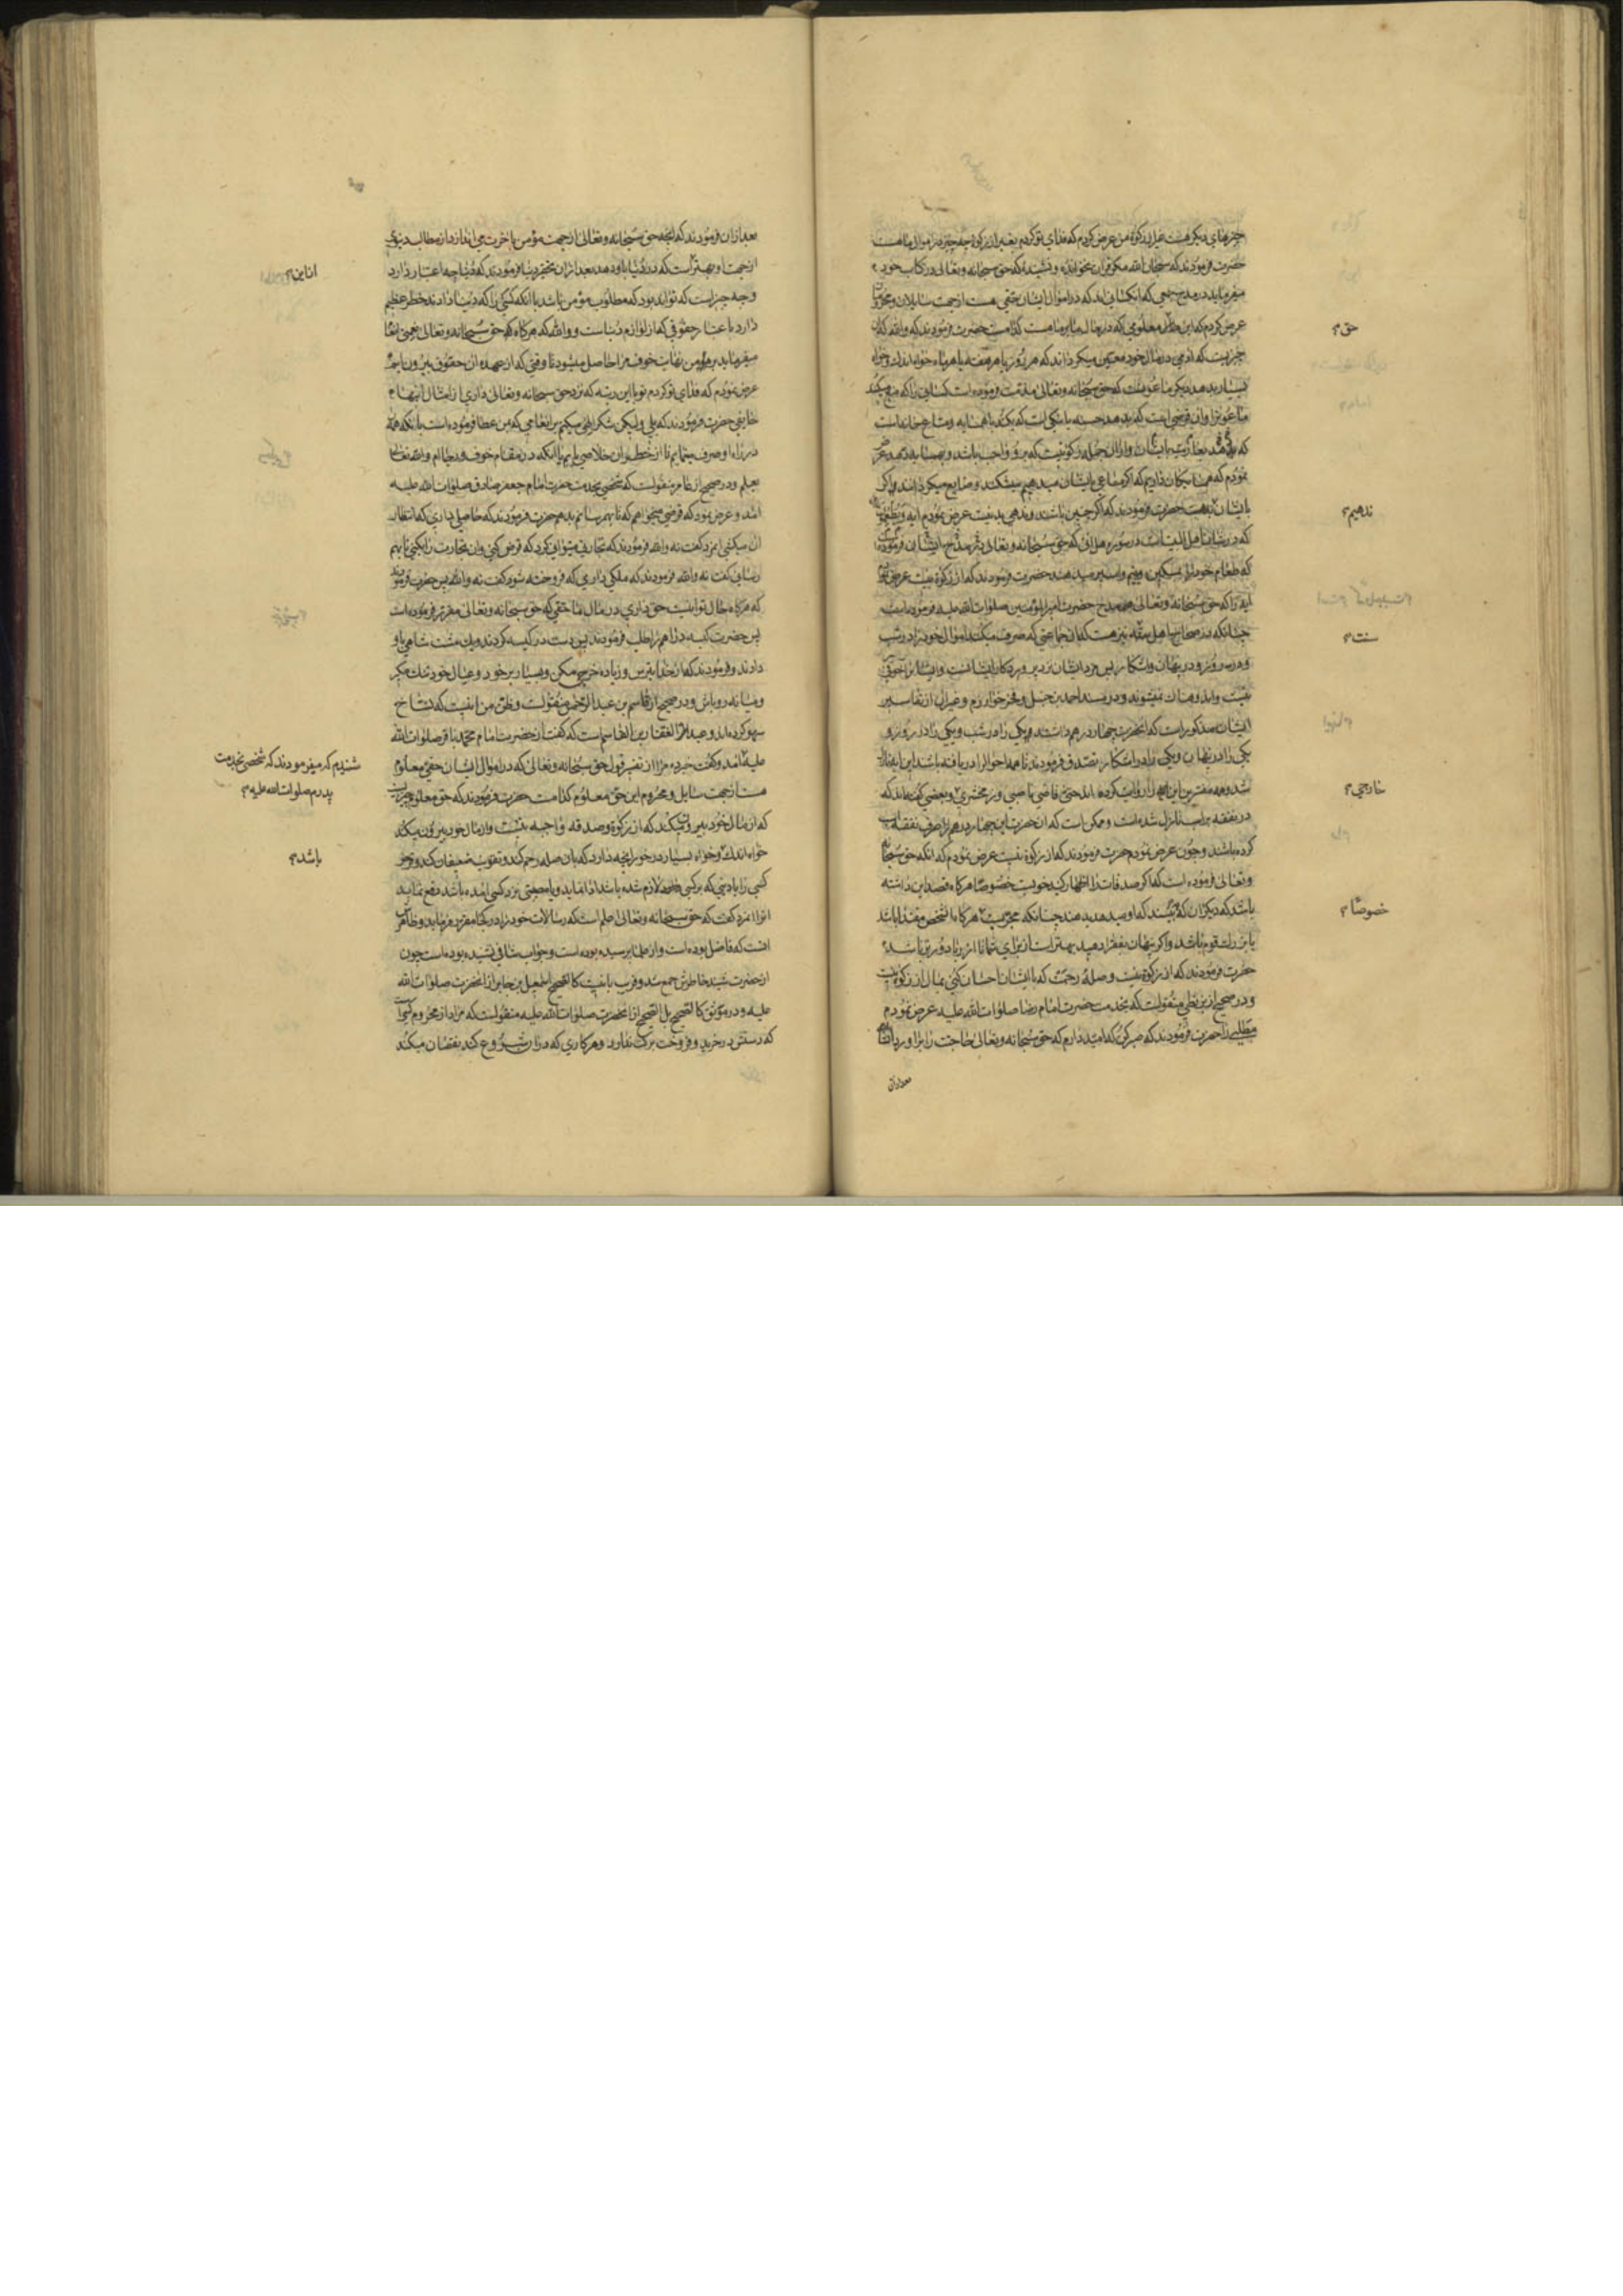 چیزهای دیگر هست غیر از زکوة من عرض کردم که فدای تو کردم بغیر از زکوة چه چیز در اموال ما هست
حضرت فرمودند که سبحان الله مگر قران نخوانده و نشنیده که حق سبحانه و تعالی در کتاب خود
میفرماید در مدح جمعی که انکسانی اند که در اموال ایشان حقی هست از جهت سایلان و محرومان
عرض کردم که این حق معلومی که در مال ما بر ما هست کدامست حضرت فرمودند که والله که ان
چیزیست که ادمی در مال خود معین میگرداند که هر روز یا هر هفته یا هر ماه خواه اندك و خواه
بسیار بدهد دیگر ماعونست که حق سبحانه و تعالی مذمت فرموده است کسانی را که منع میکنند
ماعون را و ان قرضی است که بدهد حسنه یا نیکی است که بکند با همسایه و متاع خانه است
که بدهند بعاریت بایشان و از ان جمله زکوتیست که برو واجب باشد و بهمسایه بدهد عرض
نمودم که همسایگان داریم که اگر متاعی بایشان میدهیم میشکنند و ضایع میگردانند و اگر
بایشان بدهست حضرت فرمودند که اگر چنین باشند و ندهی بد نیست عرض نمودم ایه ویطعمون
که در شان اهل البیت است در سوره هل اتی که حق سبحانه و تعالی در مدح ایشان فرموده
که طعام خود را بمسکین و یتیم و اسیر میدهند حضرت فرمودند که از زکوة نیست عرض نمودم
ایه را که حق سبحانه و تعالی در مدح حضرت امیر المؤمنین صلوات الله علیه فرموده است
چنانکه در صحاح اهل سنت نیز هست که ان جماعتی که صرف میکنند اموال خود را در شب
و در روز و در پنهان و اشکار پس مزد ایشان نزد پروردگار ایشانست و ایشان را خوفی
نیست و اندوهناك نمیشوند و در مسند احمد بن حنبل و فخر خوارزم و غیر ان از تفاسیر
ایشان مذکور است که انحضرت چهار درهم داشتند و یکی را در شب و یکی را در روز و
یکی را در پنهان و یکی را در اشکار تصدق فرمودند تا همه احوال را دریافته باشند این ایه نازل
شد و همه مفسرین این را روایت کرده اند حتی قاضی ناصبی و زمخشری و بعضی گفته اند که
در نفقه بر اسب نازل شده است و ممکن است که ان حضرت این چهار درهم را صرف نفقه اسب
کرده باشند و چون عرض نمودم حضرت فرمودند که از زکوة نیست عرض نمودم که انکه حق سبحانه
و تعالی فرموده است که اگر صدقات را اظهار کنید خوبست خصوصا هرگاه قصد این داشته
باشد که دیگران که بینند که او میدهد بدهند چنانکه مجربست هرگاه ان شخص مقتدا باشد
یا بزرك قوم باشد و اگر پنهان بفقرا دهید بهتر است از برای شما تا از ریا دورتر باشد
حضرت فرمودند که از زکوة نیست و صله رحمست که با ایشان احسان کنی بمال از زکوة نیست
و در صحیح از بزنطی منقولست که بخدمت حضرت امام رضا صلوات الله علیه عرض نمودم
مطلبی را حضرت فرمودند که صبر کن که امید دارم که حق سبحانه و تعالی حاجت را براورد انشاء الله
بعد از ان
حق
ندهیم
سنت
خارجی
خصوصا
بعد از ان فرمودند که انچه حق سبحانه و تعالی از جهت مؤمن باخرت می اندازد از مطالب دنیوی
از جهت او بهتر است که در دنیا باو دهد بعد از ان تحقیر دنیا فرمودند که دنیا چه اعتبار دارد
و چه چیز است که تواند بود که مطلوب مؤمن باشد با انکه کسی را که دنیا دادند خطر عظیم
دارد باعتبار حقوقی که از لوازم دنیاست و والله که هر گاه که حق سبحانه و تعالی بمن انعام
میفرماید بر من نهایت خوف مرا حاصل میشود تا وقتی که از عهده ان حقوق بیرون ایم
عرض نمودم که فدای تو کردم تو با این رتبه که نزد حق سبحانه و تعالی داری از امثال اینها
خایفی حضرت فرمودند که بلی و لیکن شکر الهی میکنم بر انعامی که بمن عطا فرموده است با انکه همه
در راه او صرف مینمایم تا از خطر ان خلاصی یابم با انکه در مقام خوف و رجا ام والله تعالی
یعلم و در صحیح از عامر منقولست که شخصی بخدمت حضرت امام جعفر صادق صلوات الله علیه
امد و عرض نمود که قرضی میخواهم که تا بهم رسانم بدهم حضرت فرمودند که حاصلی داری که انتظار
ان میکشی انمرد گفت نه والله فرمودند که تجارتی میتوانی کرد که قرض کنی و ان تجارت را بکنی تا بهم
رسانی گفت نه والله فرمودند که ملکی داری که فروخته شود گفت نه والله پس حضرت فرمودند
که هرگاه حال تو اینست حق داری در مال ما حقی که حق سبحانه و تعالی مقرر فرموده است
پس حضرت کیسه دراهم را طلب فرمودند پس دست در کیسه کردند و یك مشت شاهی باو
دادند و فرمودند که از خدا بترس و زیاده خرجی مکن و بسیار بر خود و عیال خود تنك مگیر
و میانه رو باش و در صحیح از قاسم بن عبد الرحمن منقولست و ظن من اینست که نساخ
سهو کرده اند و عبد الغفار بن القاسم است که گفت از حضرت امام محمد باقر صلوات الله
علیه امد و گفت خبر ده مرا از تفسیر قول حق سبحانه و تعالی که در اموال ایشان حقی معلوم
هست از جهت سایل و محروم این حق معلوم کدامست حضرت فرمودند که حق معلوم چیزیست
که از مال خود بیرون میکند که از زکوة و صدقه واجبه نیست و از مال خود بیرون میکند
خواه اندك و خواه بسیار در خور انچه دارد که بان صله رحم کند و تقویت ضعیفان کند و قرض
کسی را یا دینی که بر کسی لازم شده باشد ادا نماید و یا مهمی نزد کسی امده باشد دفع نماید
انمرد گفت که حق سبحانه و تعالی اعلم است که رسالات خود را در کجا مقرر فرماید و ظاهر
انست که فاضل بوده است و از علما پرسیده بوده است و جواب شافی نشنیده بوده است چون
از حضرت شنید خاطرش جمع شد و قریب باینست کالصحیح اسمعیل بن جابر از انحضرت صلوات الله
علیه و در موثق کالصحیح بل الصحیح از انحضرت صلوات الله علیه منقولست که مراد از محروم کسی است
که دستش در خرید و فروخت برکت ندارد و هر کاری که در ان شروع کند نقصان میکند
شنیدم که میفرمودند که شخصی بخدمت
پدرم صلوات الله علیه
باشد